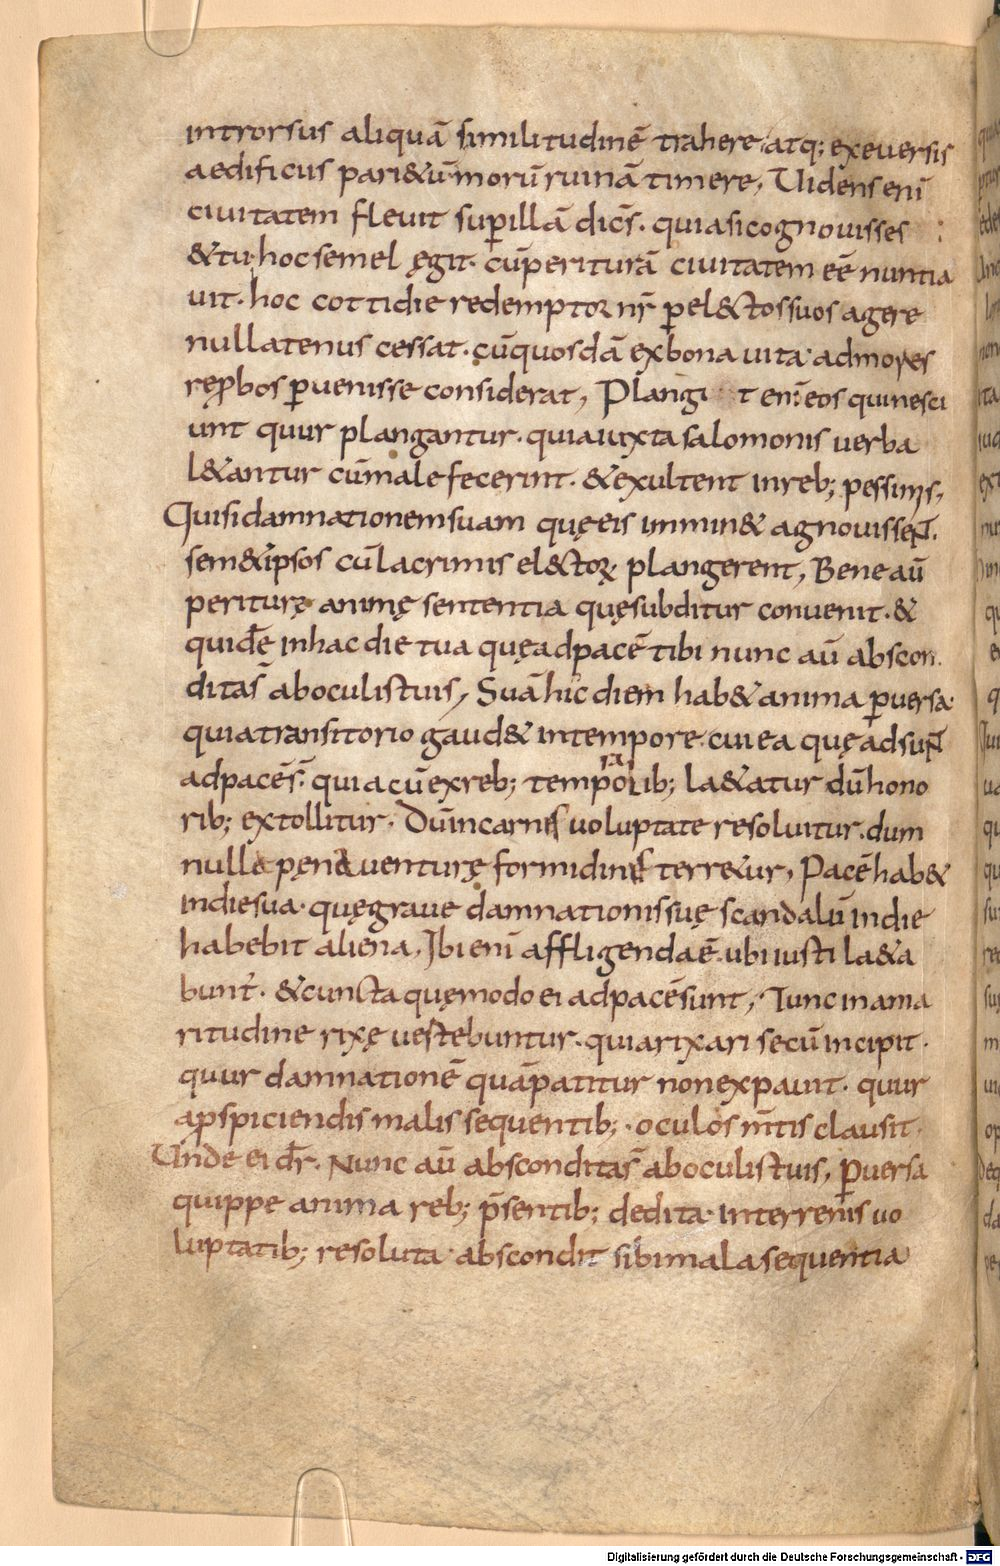 introrsus aliquā similitudinē trahere, atq; exeversis
aedificiis pari&ū morū ruinā timere, Uidens enī
civitatem flevit sup̱ illā dic̄s. quia si cognovisses
&tu. hoc semel ęgit. cū peritura͞ civitatem eē nuntia
vit. hoc cottidie redemptor nr̄ p̱ el&tos suos agere
nullatenus cessat. cū quosdā ex bona vita. ad mores
rep̱bos p̱venisse considerat, Plangi t enī eos qui nesci
unt quur plangantur. quia iuxta salomonis verba
l&antur cū male fecerint. &exultent in reb; pessimis,
Qui si damnationem suam quę eis immin& agnovissent.
sem&ipsos cū lacrimis el&toꝝ plangerent, Bene aū
periturę animę sententia quę subditur convenit. &
quidē in hac die tua quę ad pacē tibi nunc aū abscon
dita s̄ ab oculis tuis, Suā hic diem hab& anima p̱versa.
quia transitorio gaud& in tempore. cui ea quę adsunt
ad pacē s̄. quia cū ex reb; temporalib; la&atur dū hono
rib; extollitur. Dū in carnis voluptate resolvitur. dum
nulla pęna venturę formidinis terr&ur, Pacē hab&
in die sua. quę grave damnationis suę scandalū in die
habebit aliena, Ibi enī affligenda ē. ubi iusti la&a
bunt̄. &cuncta quę modo ei ad pacē sunt, Tunc in ama
ritudine rixę vertebuntur. quia rixari secū incipit.
quur damnationē quā patitur non expavit. quur
a p̱spiciendis malis sequentib;. oculos m̄tis clausit.
Unde ei dr̄. Nunc aū abscondita s̄ ab oculis tuis, p̱versa
quippe anima reb; p̄sentib; dedita. in terrenis vo
luptatib; resoluta. abscondit sibi mala sequentia
Digitalisierung gefördert durch die Deutsche Forschungsgemeinschaft - DFG